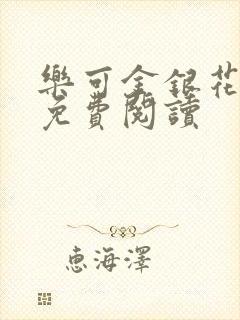 樂可金銀花
免費閱讀
惠海澤